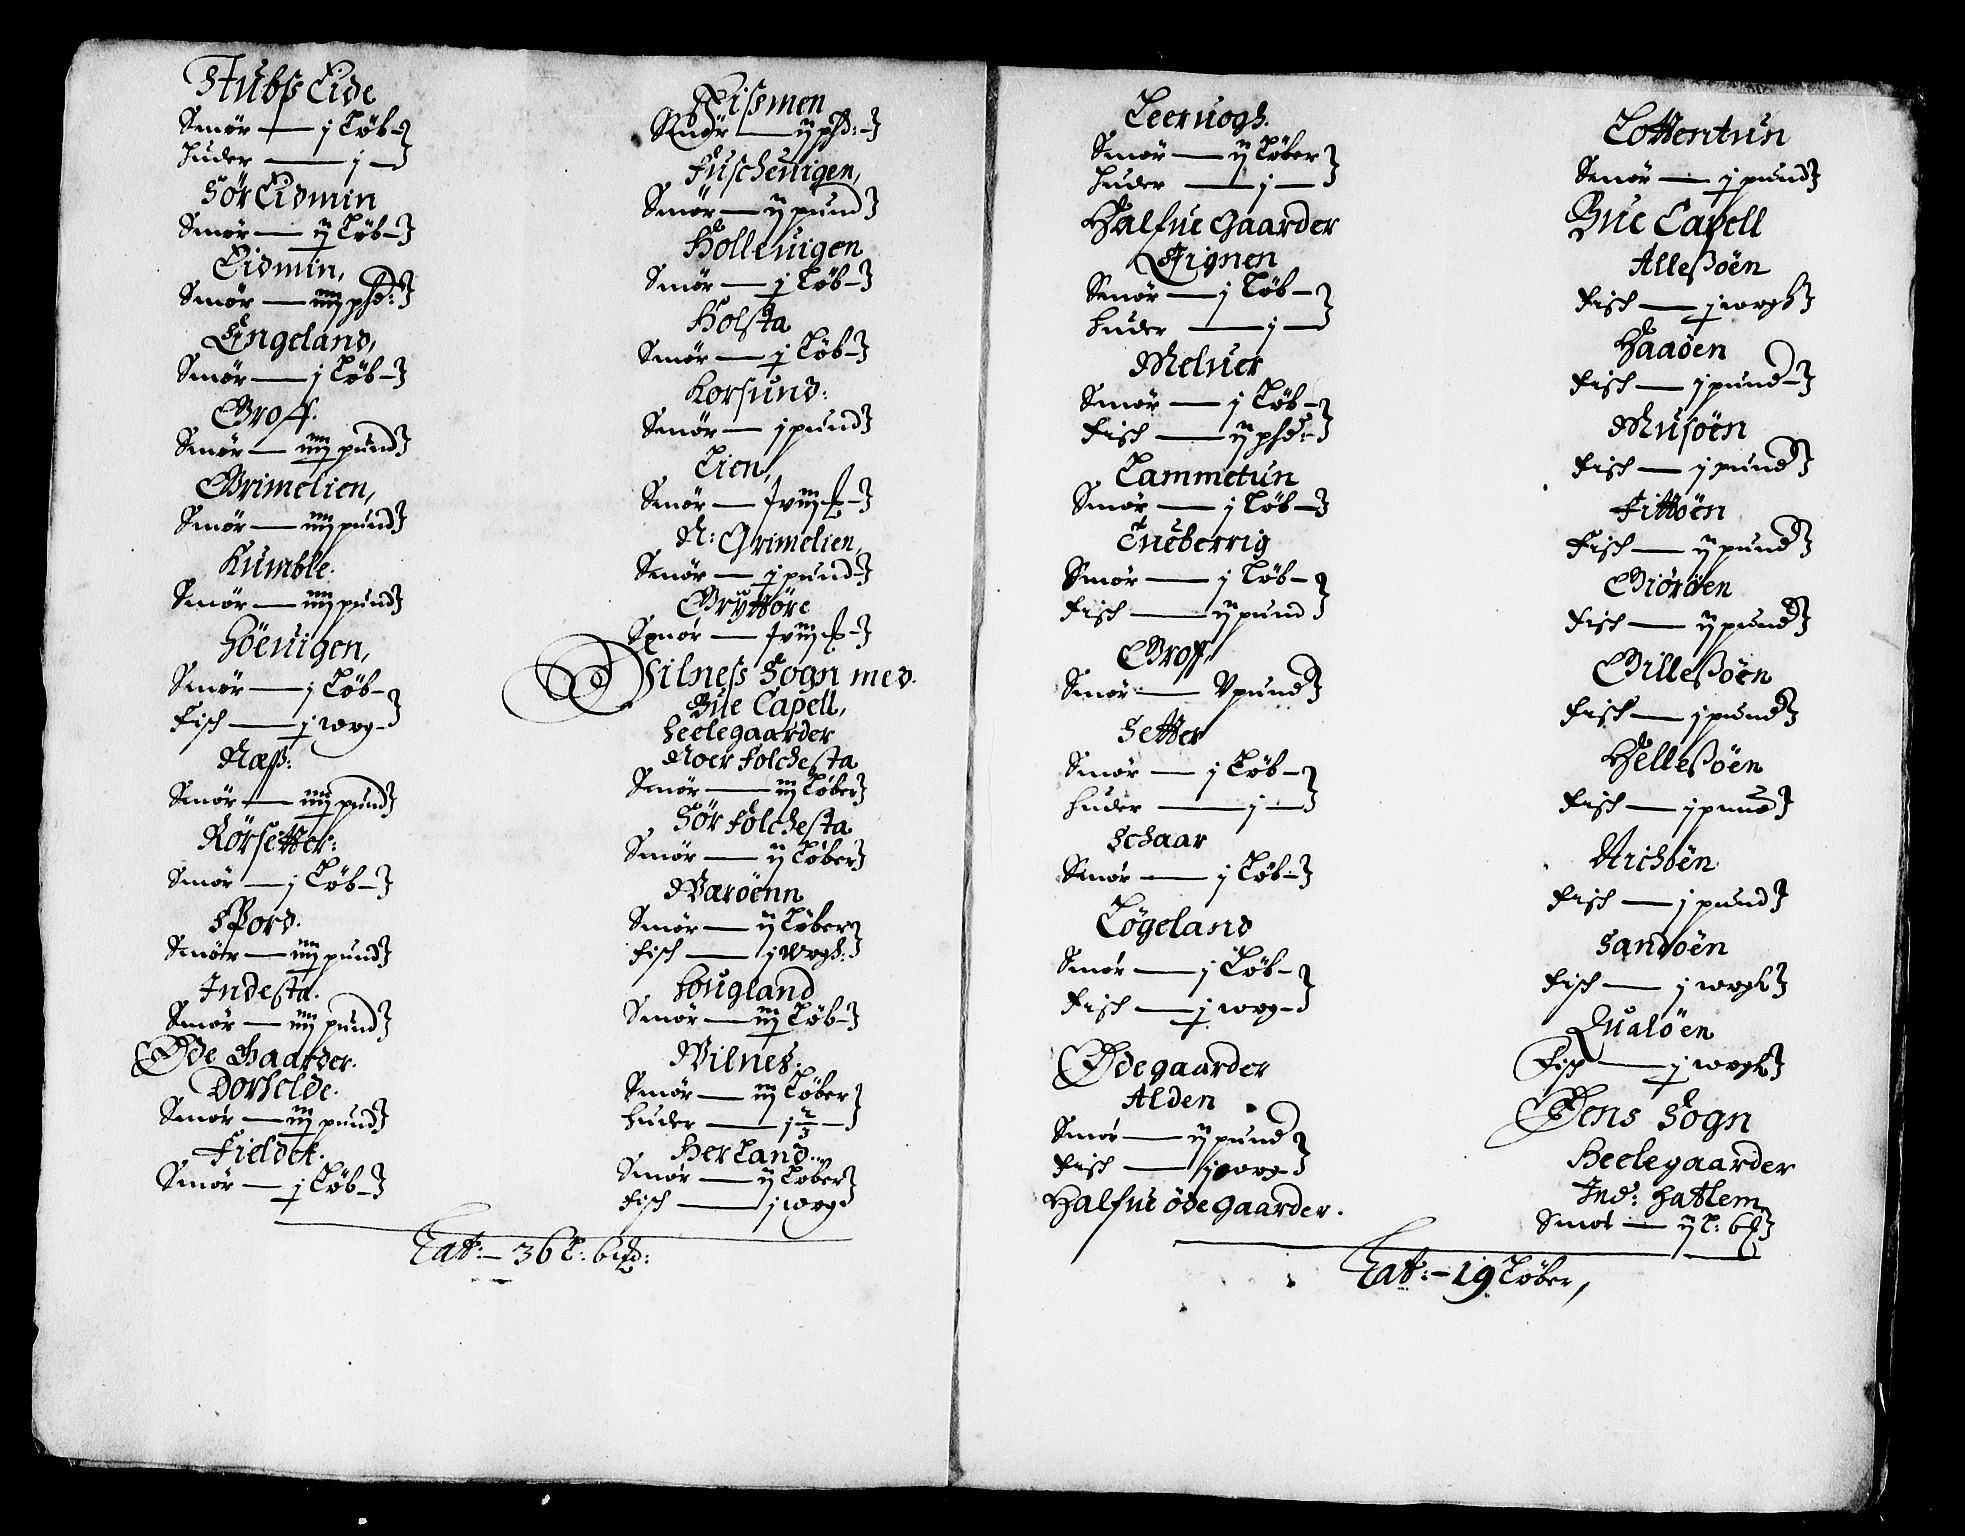 Stubß Eide
Smør — j Løb —
Huder — j —
Sör Eidmin
Smør — ij Løb —
Eidmin,
Smør — iiij phd: —
Engeland,
Smør — j Løb —
Groff.
Smør — iiij pund
Grimelien,
Smør — iiij pund
Kumble.
Smør — iiij pund
Höeuigen,
Smør — j Løb —
Fisch — j wog —
Næß:
Smør — iiij pund
Rörsetter:
Smør — j Løb —
Spord.
Smør — iiij pund
Indesta.
Smør — iiij pund
Øde Gaarder.
Dorhelde.
Smør — iij pund
Fieldet.
Smør — j Løb —
Nißmen
Smør — ij phd: —
Fuscheuigen,
Smør — ij pund
Holleuigen
Smør — j Løb —
Holsta
Smør — j Løb —
Korsund:
Smør — j pund
Lien,
Smør —
N: Grimelien,
Smør — j pund —
Gryttöre
Smør —
Vilneß Sogn med
Bue Capell,
Heelegaarder
Noer Folchesta
Smør — iij Løber
Sör Folchesta
Smør — ij Løber
Wæröenn
Smør — ij Løber
Fisch — j Wogh:
Hougland
Smør — iij Løb —
Wilnes.
Smør — iij Løber
Huder — j 2/3 —
Herland..
Smør — ij Løber
Fisch — j wog
Lat: — 36 L:
Leeruogh.
Smør — ij Løber
Huder — j —
Halfue Gaarder
Eignen
Smør — j Løb —
Huder — j —
Meluer
Smør — j Løb —
Fisch — ij phd: —
Lammetun
Smør — j Løb —
Tueberrig
Smør — j Løb —
Fisch — ij pund
Groff,
Smør — V pund
Setter
Smør — j Løb —
Huder — j —
Schaar
Smør — j Løb —
Løgeland
Smør — j Løb —
Fisch — j wog —
Ødegaarder
Alden
Smør — ij pund
Fisch — j wog —
Halfue ödegaarder.
Lottentun
Smør — j pund
Bue Capell
Alleßöen
Fisch — j wogh
Haaöen
Fisch — j pund —
Musöen
Fisch — j pund
Fittöen
Fisch — ij pund
Giöröen
Fisch — ij pund
Gilleßöen
Fisch — j pund
Helleßöen
Fisch — j pund
Arichöen
Fisch — j pund
Sandöen
Fisch — j wogh
Qualöen
Fisch — j wogh
Öens Sogn
Heelegaarder
Ind: Hatlem
Smør — ij L:
Lat: — 19 Løber,